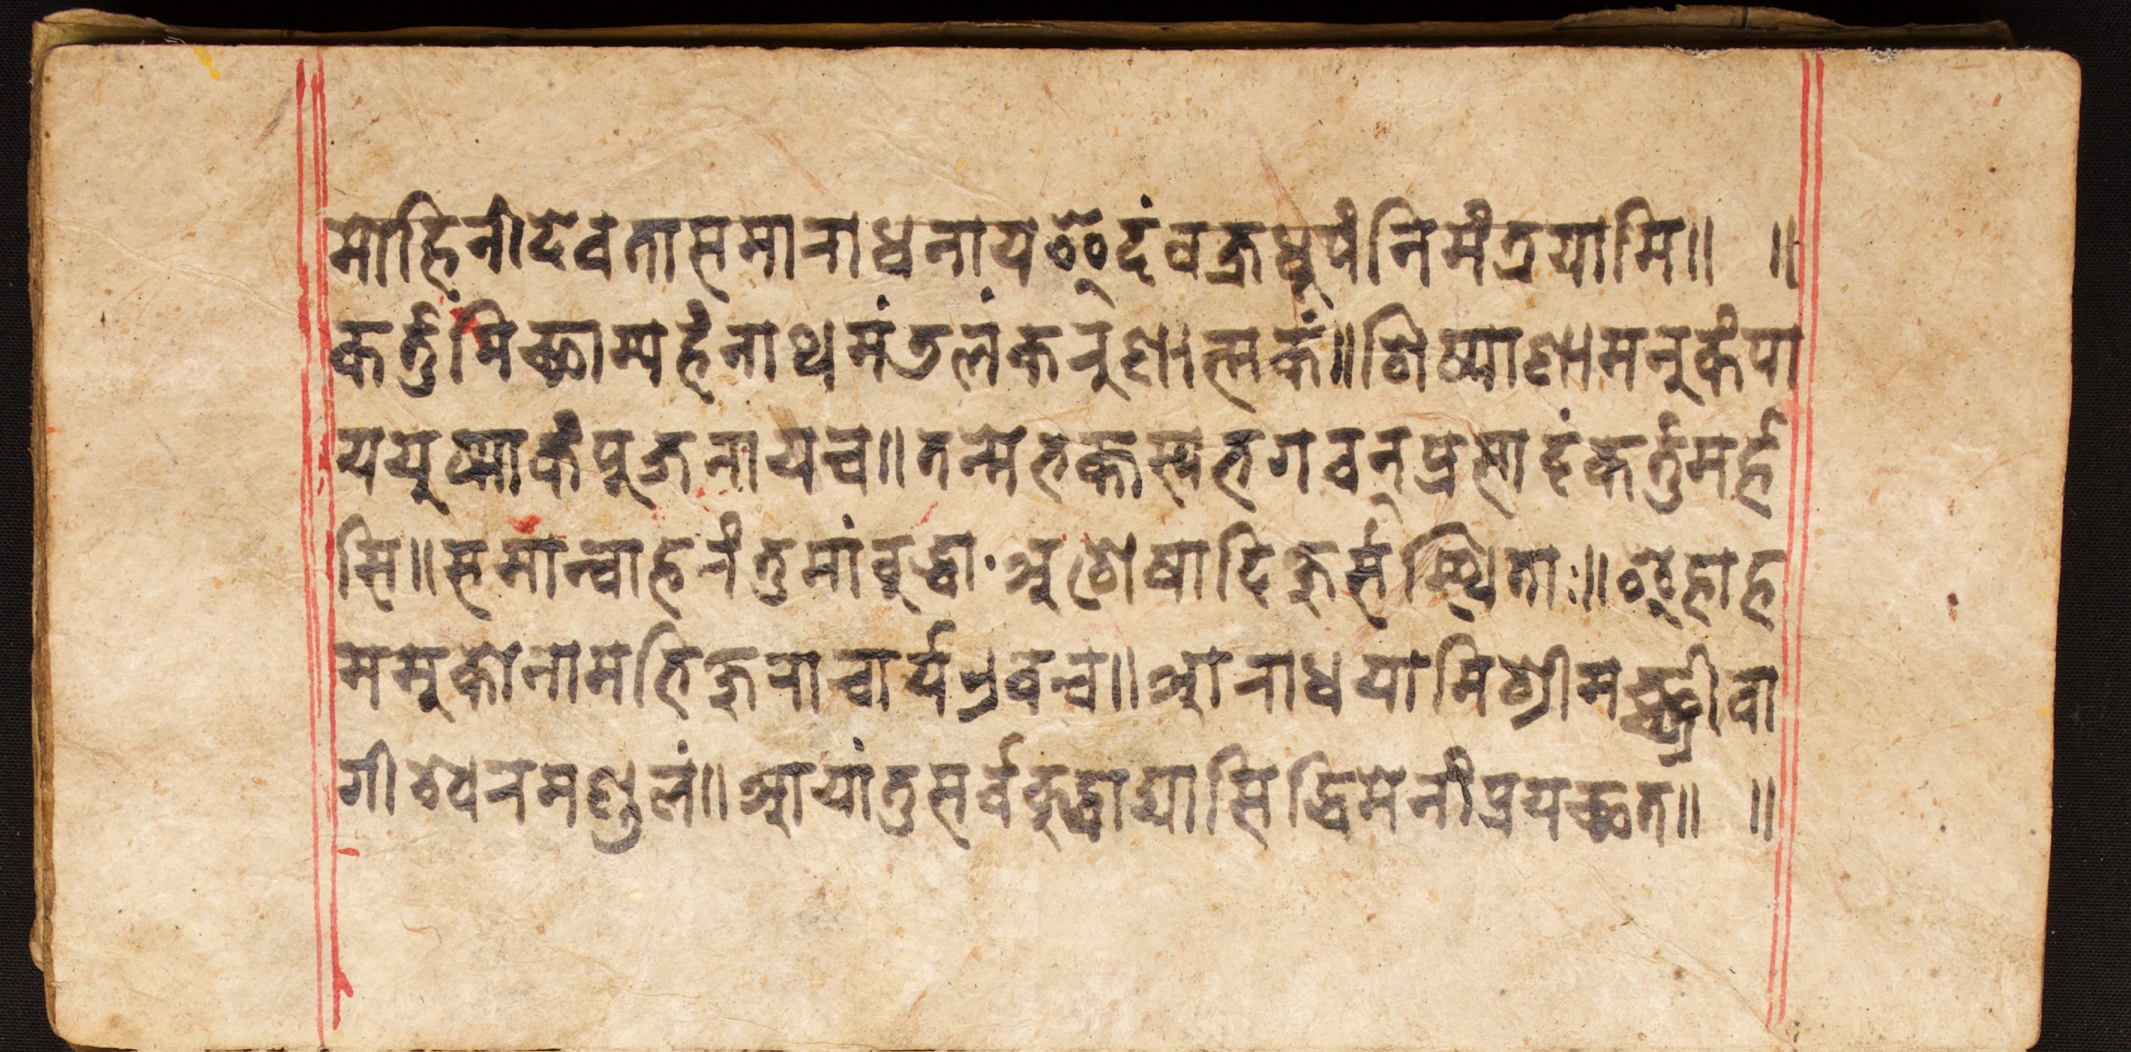 मोहिनीदेवतासमाराधनाय इदं वज्रधूपं निमंत्रयामि॥ ॥
कर्तुंमिच्छाम्यहं नाथ मंतलं करुणात्मकं॥ शिष्याणामनुकंपा
य युष्माकं पूजनाय च॥ तन्मे भक्तस्य भगवन् प्रसादं कर्तुमर्ह
सि॥ समान्वाहरंतु मां बुद्धा अशेषादिक्षुर्संस्थिताः॥ इहाह
ममुको नाम हि वज्राचार्य॥ आराधयामि श्रीमच्छ्री वा
गीश्वेरमण्डुलं॥ आयांतु सर्वबुद्धाद्या सिद्धि मे प्रयच्छत॥ ॥